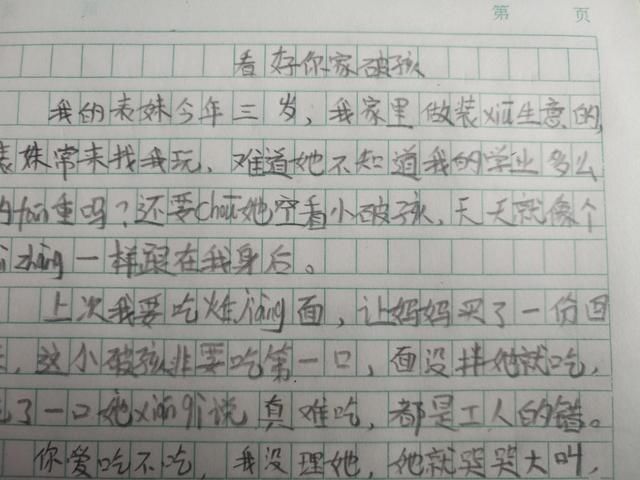 第 页
看好你家破孩
我的表妹今年三岁，我家里做装xiū生意的，
表妹常来找我玩，难道她不知道我的学业多么
fán重吗？还要chōu她空看小破孩，天天就像个
zhāng一样跟在我身后。
上次我要吃炸jiàng面，让妈妈买了一份回
，这小破孩非要吃第一口，面没拌她就吃，
了一口她xián qì说真难吃，都是工人的错。
你爱吃不吃，我没理她，她就哭哭大叫，